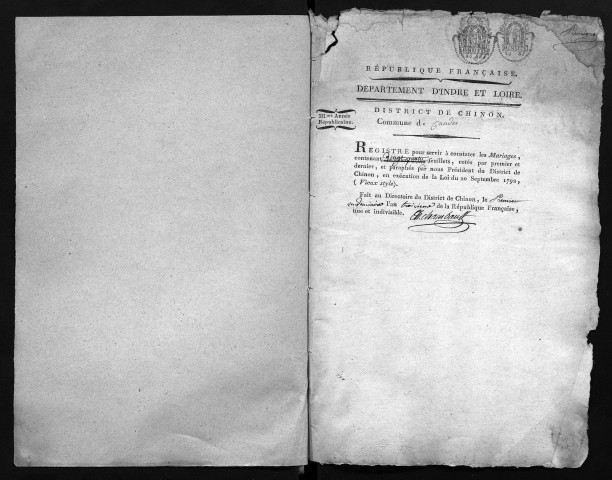 RÉPUBLIQUE FRANÇAISE.
DÉPARTEMENT D'INDRE ET LOIRE.
DISTRICT DE CHINON.
III.me Année
Républicaine.
Commune d
REGISTRE pour servir à constater les Mariages,
contenant feuillets, cotés par premier et
dernier, et paraphés par nous Président du District de
Chinon, en exécution de la Loi du 20 Septembre 1792,
(Vieux style).
Fait au Directoire du District de Chinon, le premier
vendemiaire l'an troisieme de la République Française,
une et indivisible.